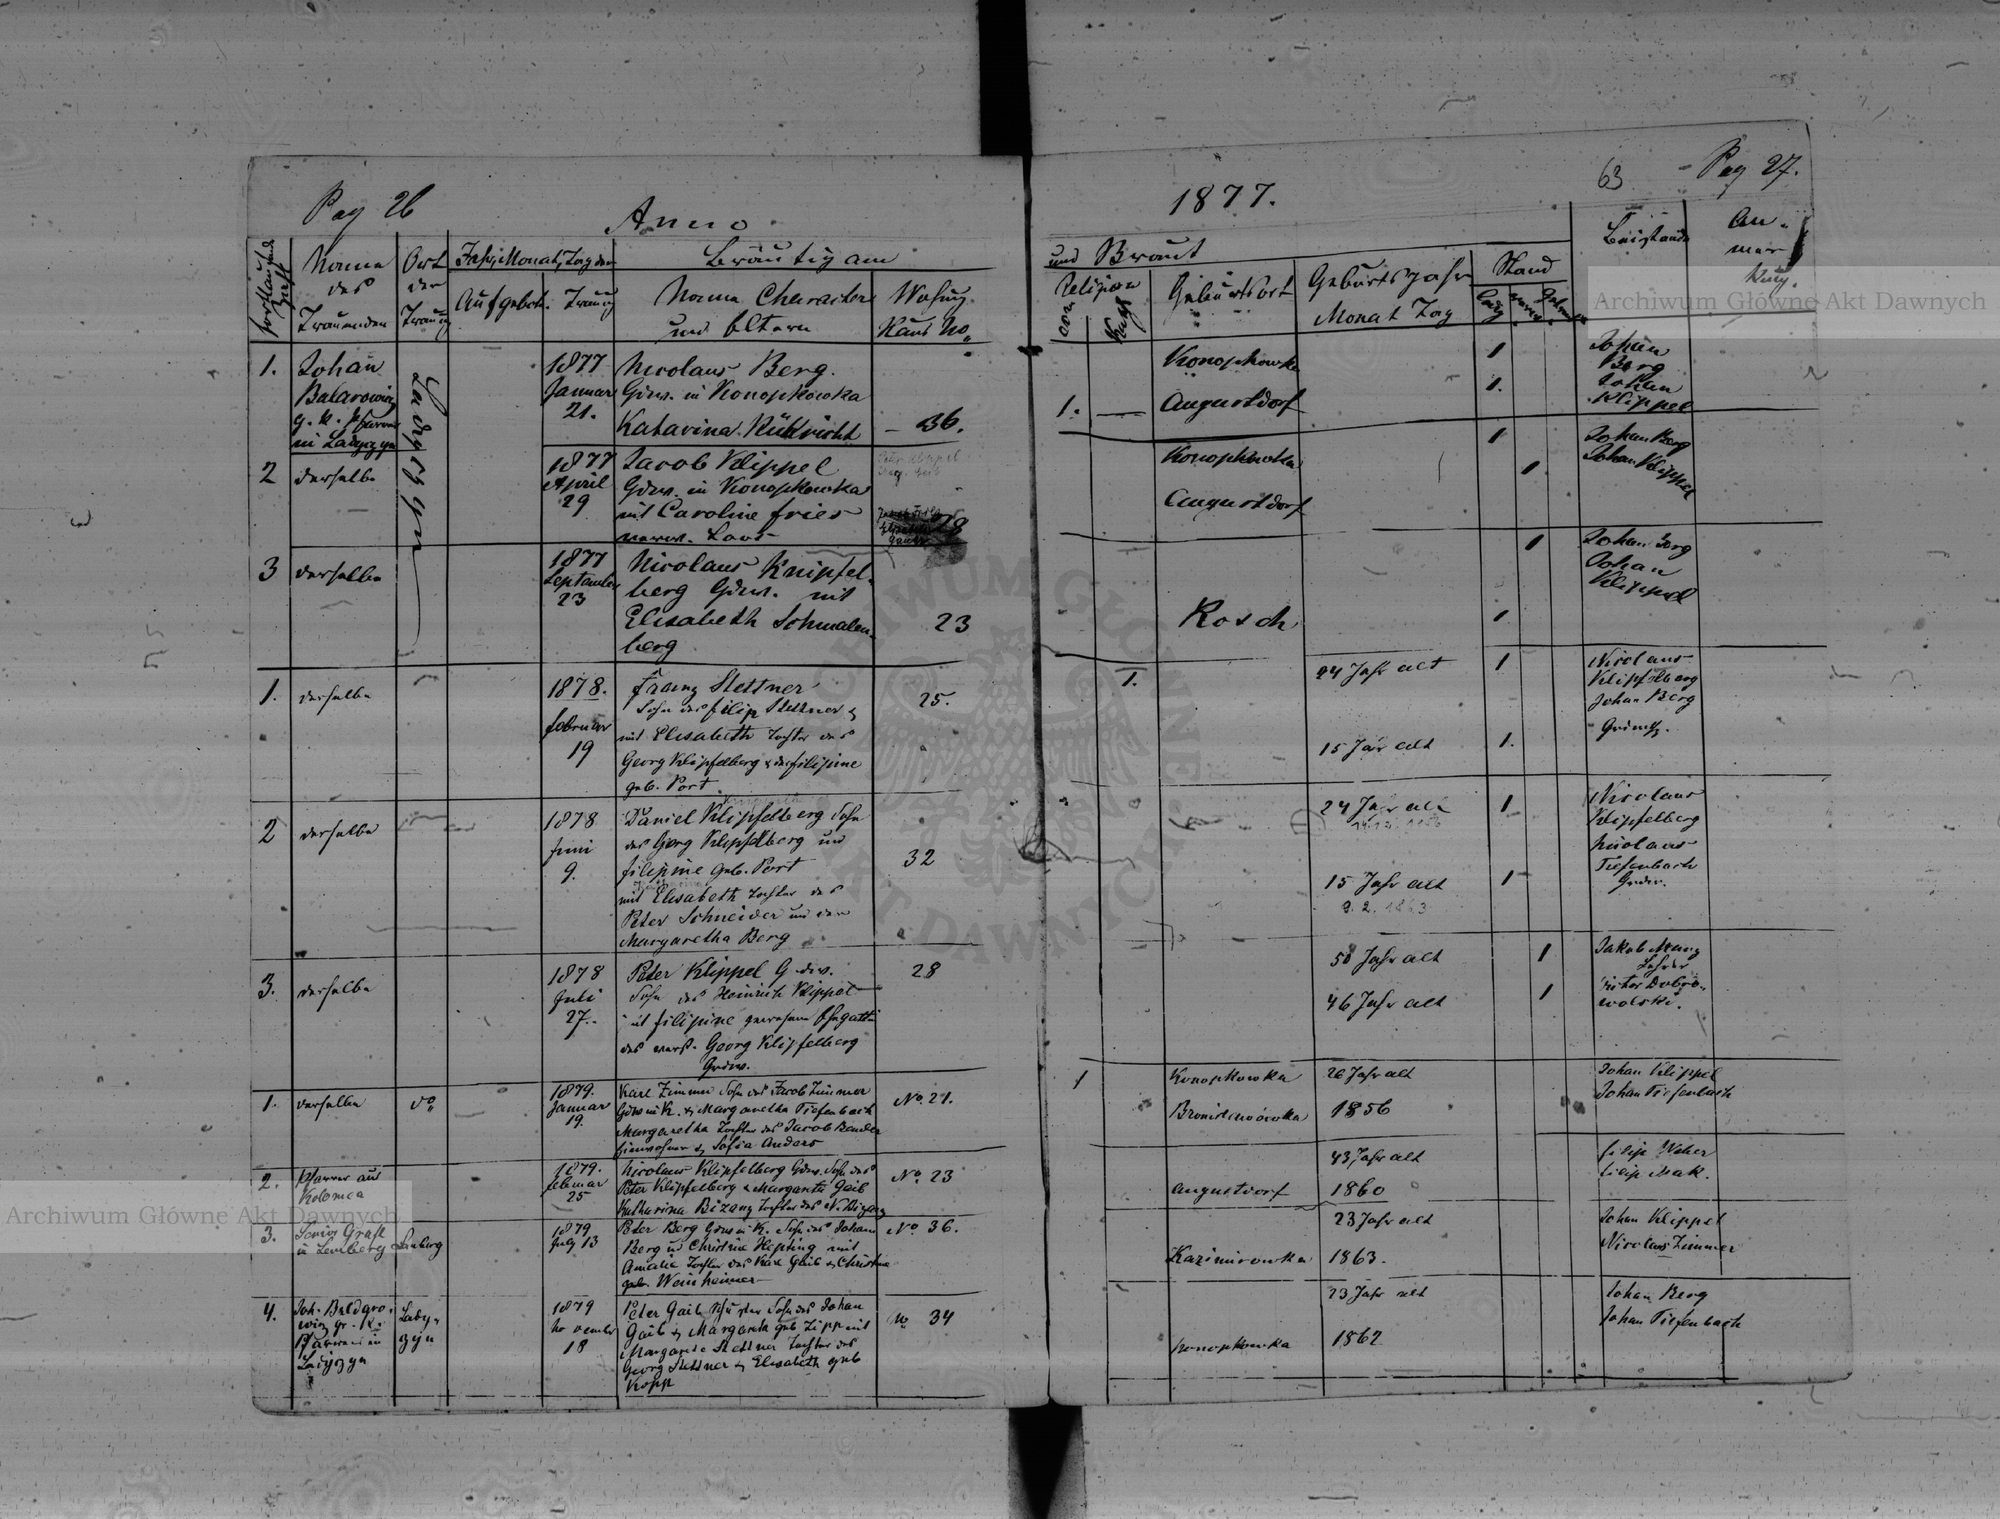 Pag 26
Anno
1877.
63
Pag 27.
Name
des
Trauenden
Ort
der
Trauung
Jahr, Monat, Tag der
Aufgebot.
Trauung
Bräutigam
Name Character
und Eltern
Wohung
Haus No.
und Braut
Religion
Geburtsort
Geburtsjahr
Monat Tag
Stand
ledig
Beistände
An-
mer
kug.
1.
Johan
g. k. Pfarrer
in Ladyczyn
Ladyczyn
1877
Januar
21.
Nicolaus Berg.
Gdrw. in Konopkowka
Katarina
36.
1.
Konopkowka
Augustdorf
1
1.
Johan
Berg
Johan
Klippel
2
derselbe
1877
April
29
Jacob Klippel
Gdrw. in Konopkowka
mit Caroline Fries
28
Konopkowka
Augustdorf
1
1.
Johan Berg
Johan Klippel
3
derselbe
1877
September
23
Nicolaus Knipfel-
berg Gdrw. mit
Elisabeth Schmalen-
berg
23
Rosch
1
1
Johan Berg
Johan
Klippel
1.
derselbe
1878.
Februar
19
Franz Stettner
Sohn des Filip Stettner &
mit Elisabeth Tochter des
Georg Klipfelberg & der Filipine
geb. Port.
25.
1.
24 Jahr alt
15 Jahr alt
1
1.
Nicolaus
Klipfelberg
Johan Berg
2
derselbe
1878
Juni
9.
Daniel Klipfelberg Sohn
des Georg Klipfelberg und
Filipine geb. Port
mit Elisabeth Tochter des
Peter Schneider und der
Margaretha Berg
32
24 Jahr alt
15 Jahr alt
9. 2. 1863
1
1
Nicolaus
Klipfelberg
Nicolaus
Tiefenbach
Grdw.
3.
derselbe
1878
Juli
27.
Peter Klippel Gdrw.
Sohn des Heinrich Klippel
mit Filipine gewesene Ehegattin
des verst. Georg Klipfelberg
Grdw.
28
58 Jahr alt
46 Jahr alt
1
1
Jakob Manz
Lehrer
Victor Dobro-
wolski.
1.
derselbe
do
1879.
Januar
19.
Karl Zimmer Sohn des Jacob Zimmer
Gdrw in K. & Margaretha Tiefenbach
Margaretha Tochter des Jacob Bender
Einwohner & Sofia Anders
No. 21.
1
Konopkowka
Bronislawowka
26 Jahr alt
1856
Johan Klippel
Johan Tiefenbach
2.
Pfarrer aus
Kolomea
1879.
Februar
25
Nicolaus Klipfelberg Gdrw. Sohn des
Peter Klipfelberg & Margareta Gaib
Katharina Bizang Tochter des N. Bizang
No. 23
Augustdorf
43 Jahr alt
1860
Filip Weber
Filip Mak.
3.
in Lemberg
Lemberg
1879
July 13
Peter Berg Gdrw in K. Sohn des Johan
Berg und Christine Hepting mit
Amalie Tochter des Karl Gaib & Christine
geb. Weinheimer
No. 36.
Kazimirowka
23 Jahr alt
1863.
Johan Klippel
Nicolaus Zimmer
4.
Joh. Baldgro-
wicz gr. k.
Pfarrer in
Ladyczyn
Lady-
czyn
1879
November
18
Peter Gaib Schuster Sohn des Johan
Gaib & Margareta geb Zipp mit
Margareta Stettner Tochter des
Georg Stettner & Elisabeth geb
Kopp
No 34
Konopkowka
23 Jahr alt
1862
Johan Berg
Johan Tiefenbach
Archiwum Główne Akt Dawnych
Archiwum Główne Akt Dawnych
ARCHIWUM GŁÓWNE AKT DAWNYCH